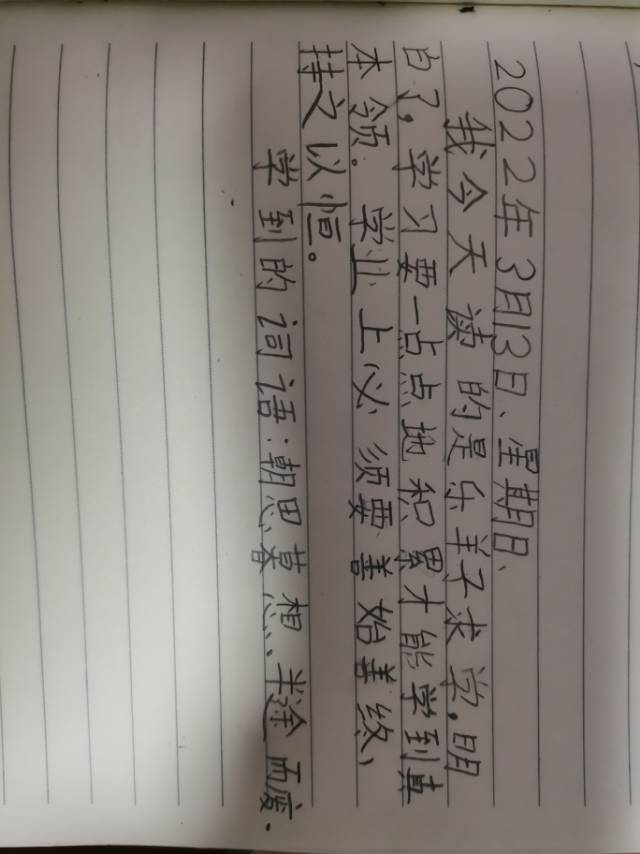 2022年3月13日、星期日、
我今天读的是乐羊子求学,明
白了,学习要一点点地积累才能学到真
本领。学业上必须要善始善终、
持之以恒。
学到的词语:朝思暮想、半途而废.